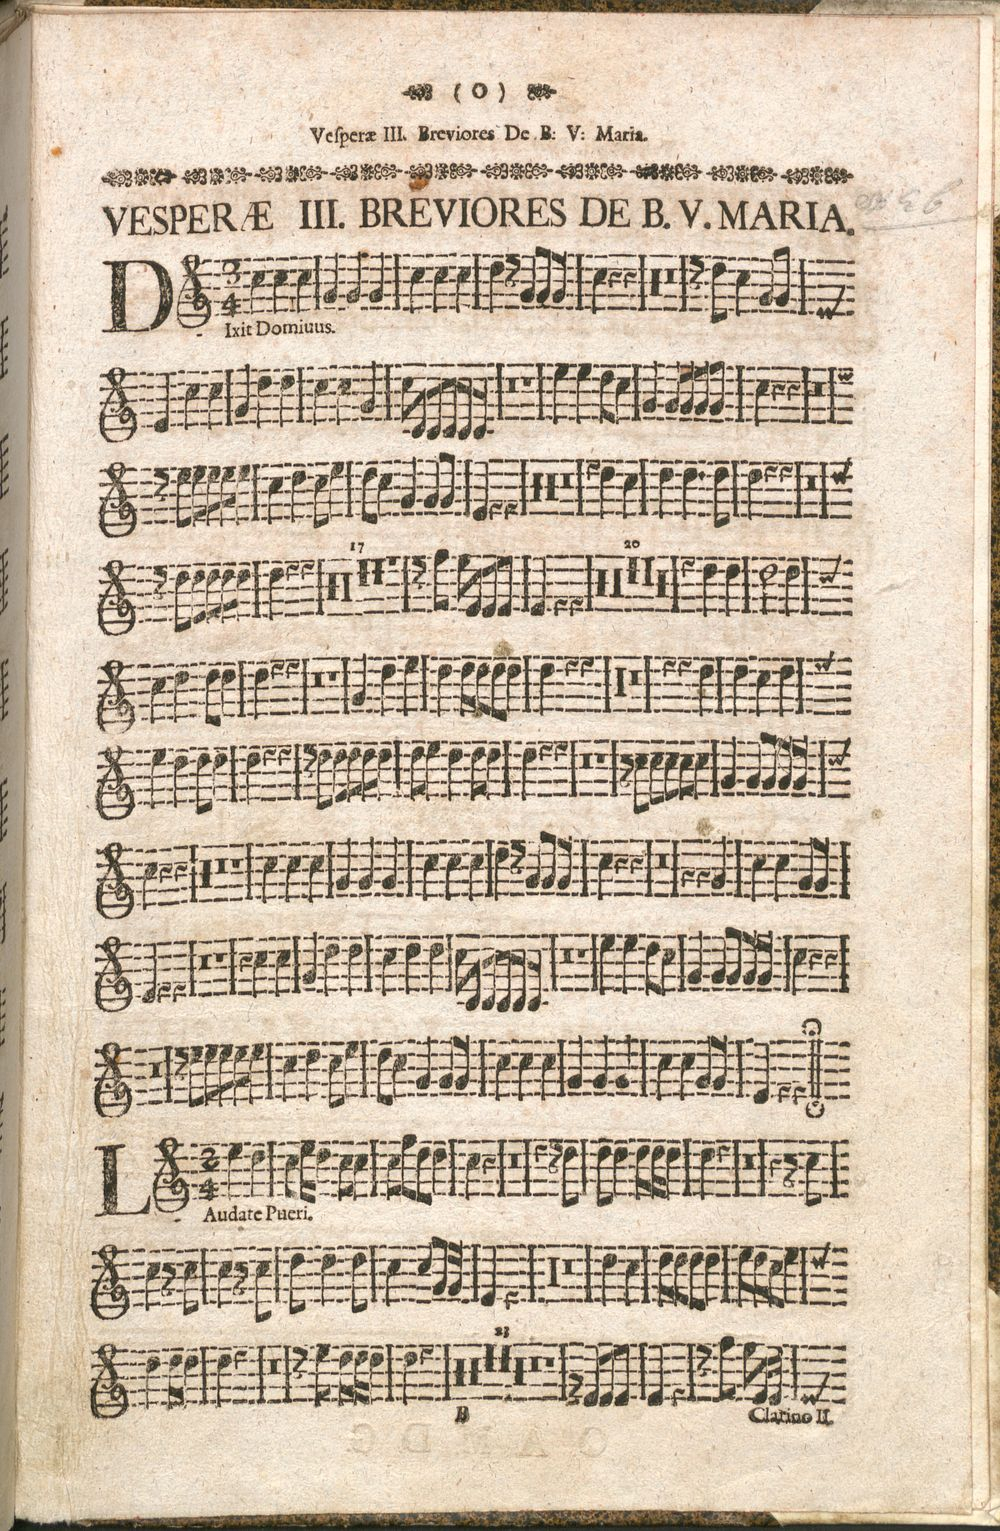 ( O )
Vesperæ III. Breviores De B: V: Maria.
VESPERÆ III. BREVIORES DE B. V. MARIA.
D
3
4
Ixit Domiuus.
17
20
L
2
4
Audate Pueri.
23
B
Clarino II.